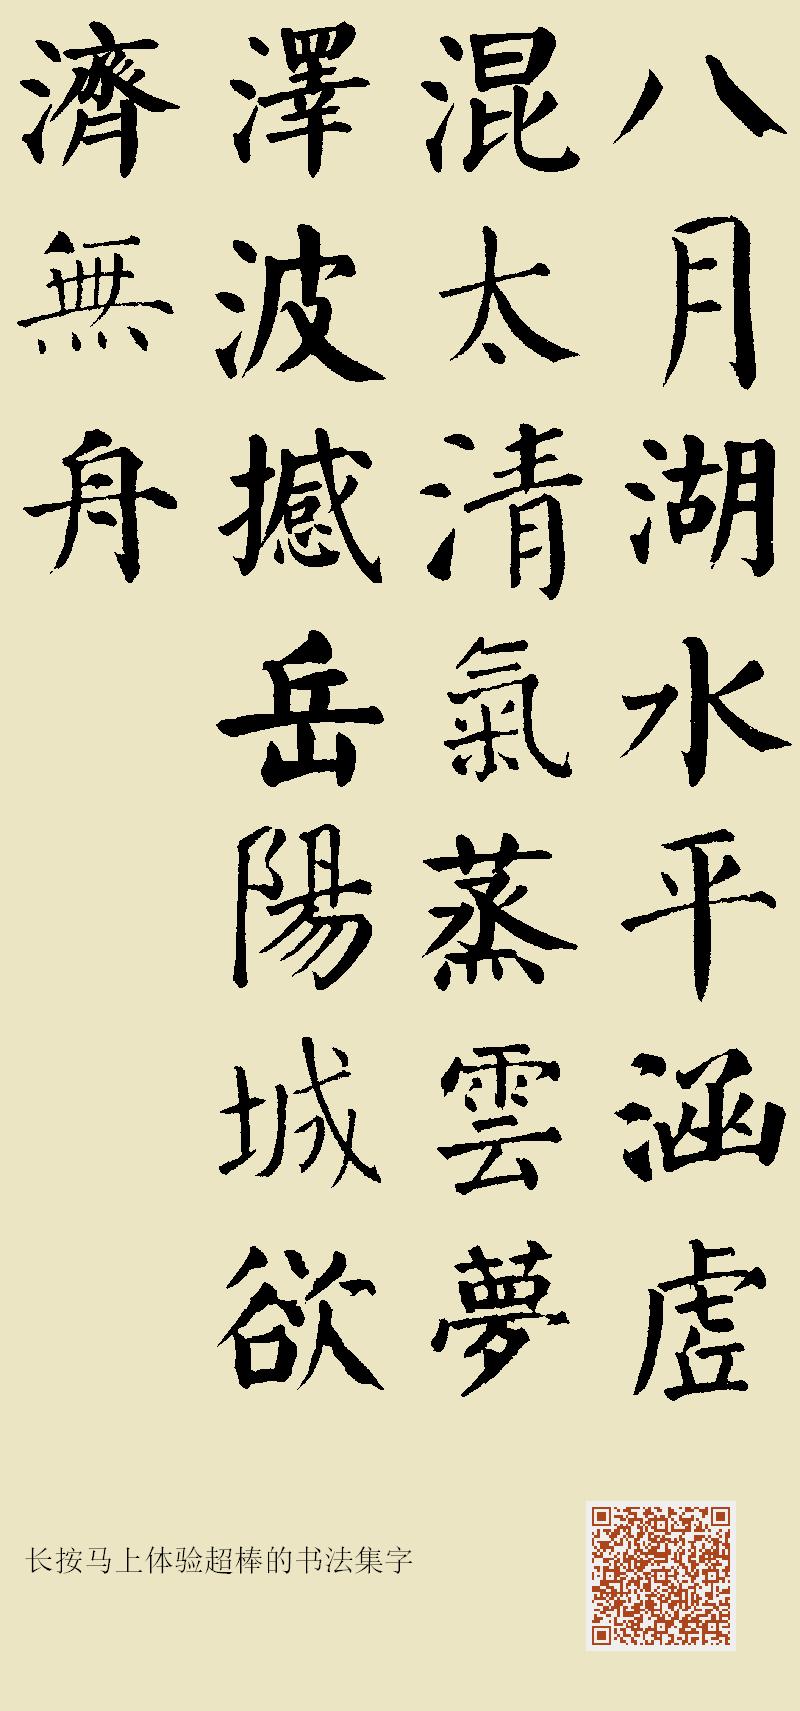 八月湖水平涵虛
混太清氣蒸雲夢
澤波撼岳陽城欲
濟無舟
长按马上体验超棒的书法集字